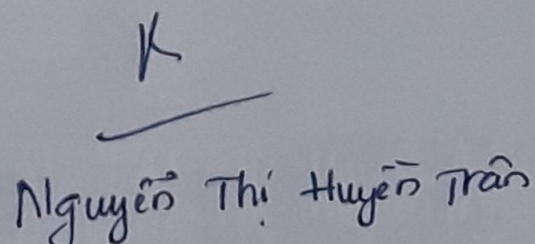 K
Nguyễn Thị Huyền Trân